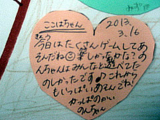 ここはちゃん
2013.
3.16
今日はたくさんゲームしてあ
そんだね 楽しかったかな? の
んちゃんはみんなと遊べてた
のしかったです♪これから
もいっぱいあそんでね
かっぱのがっい
のんちゃん